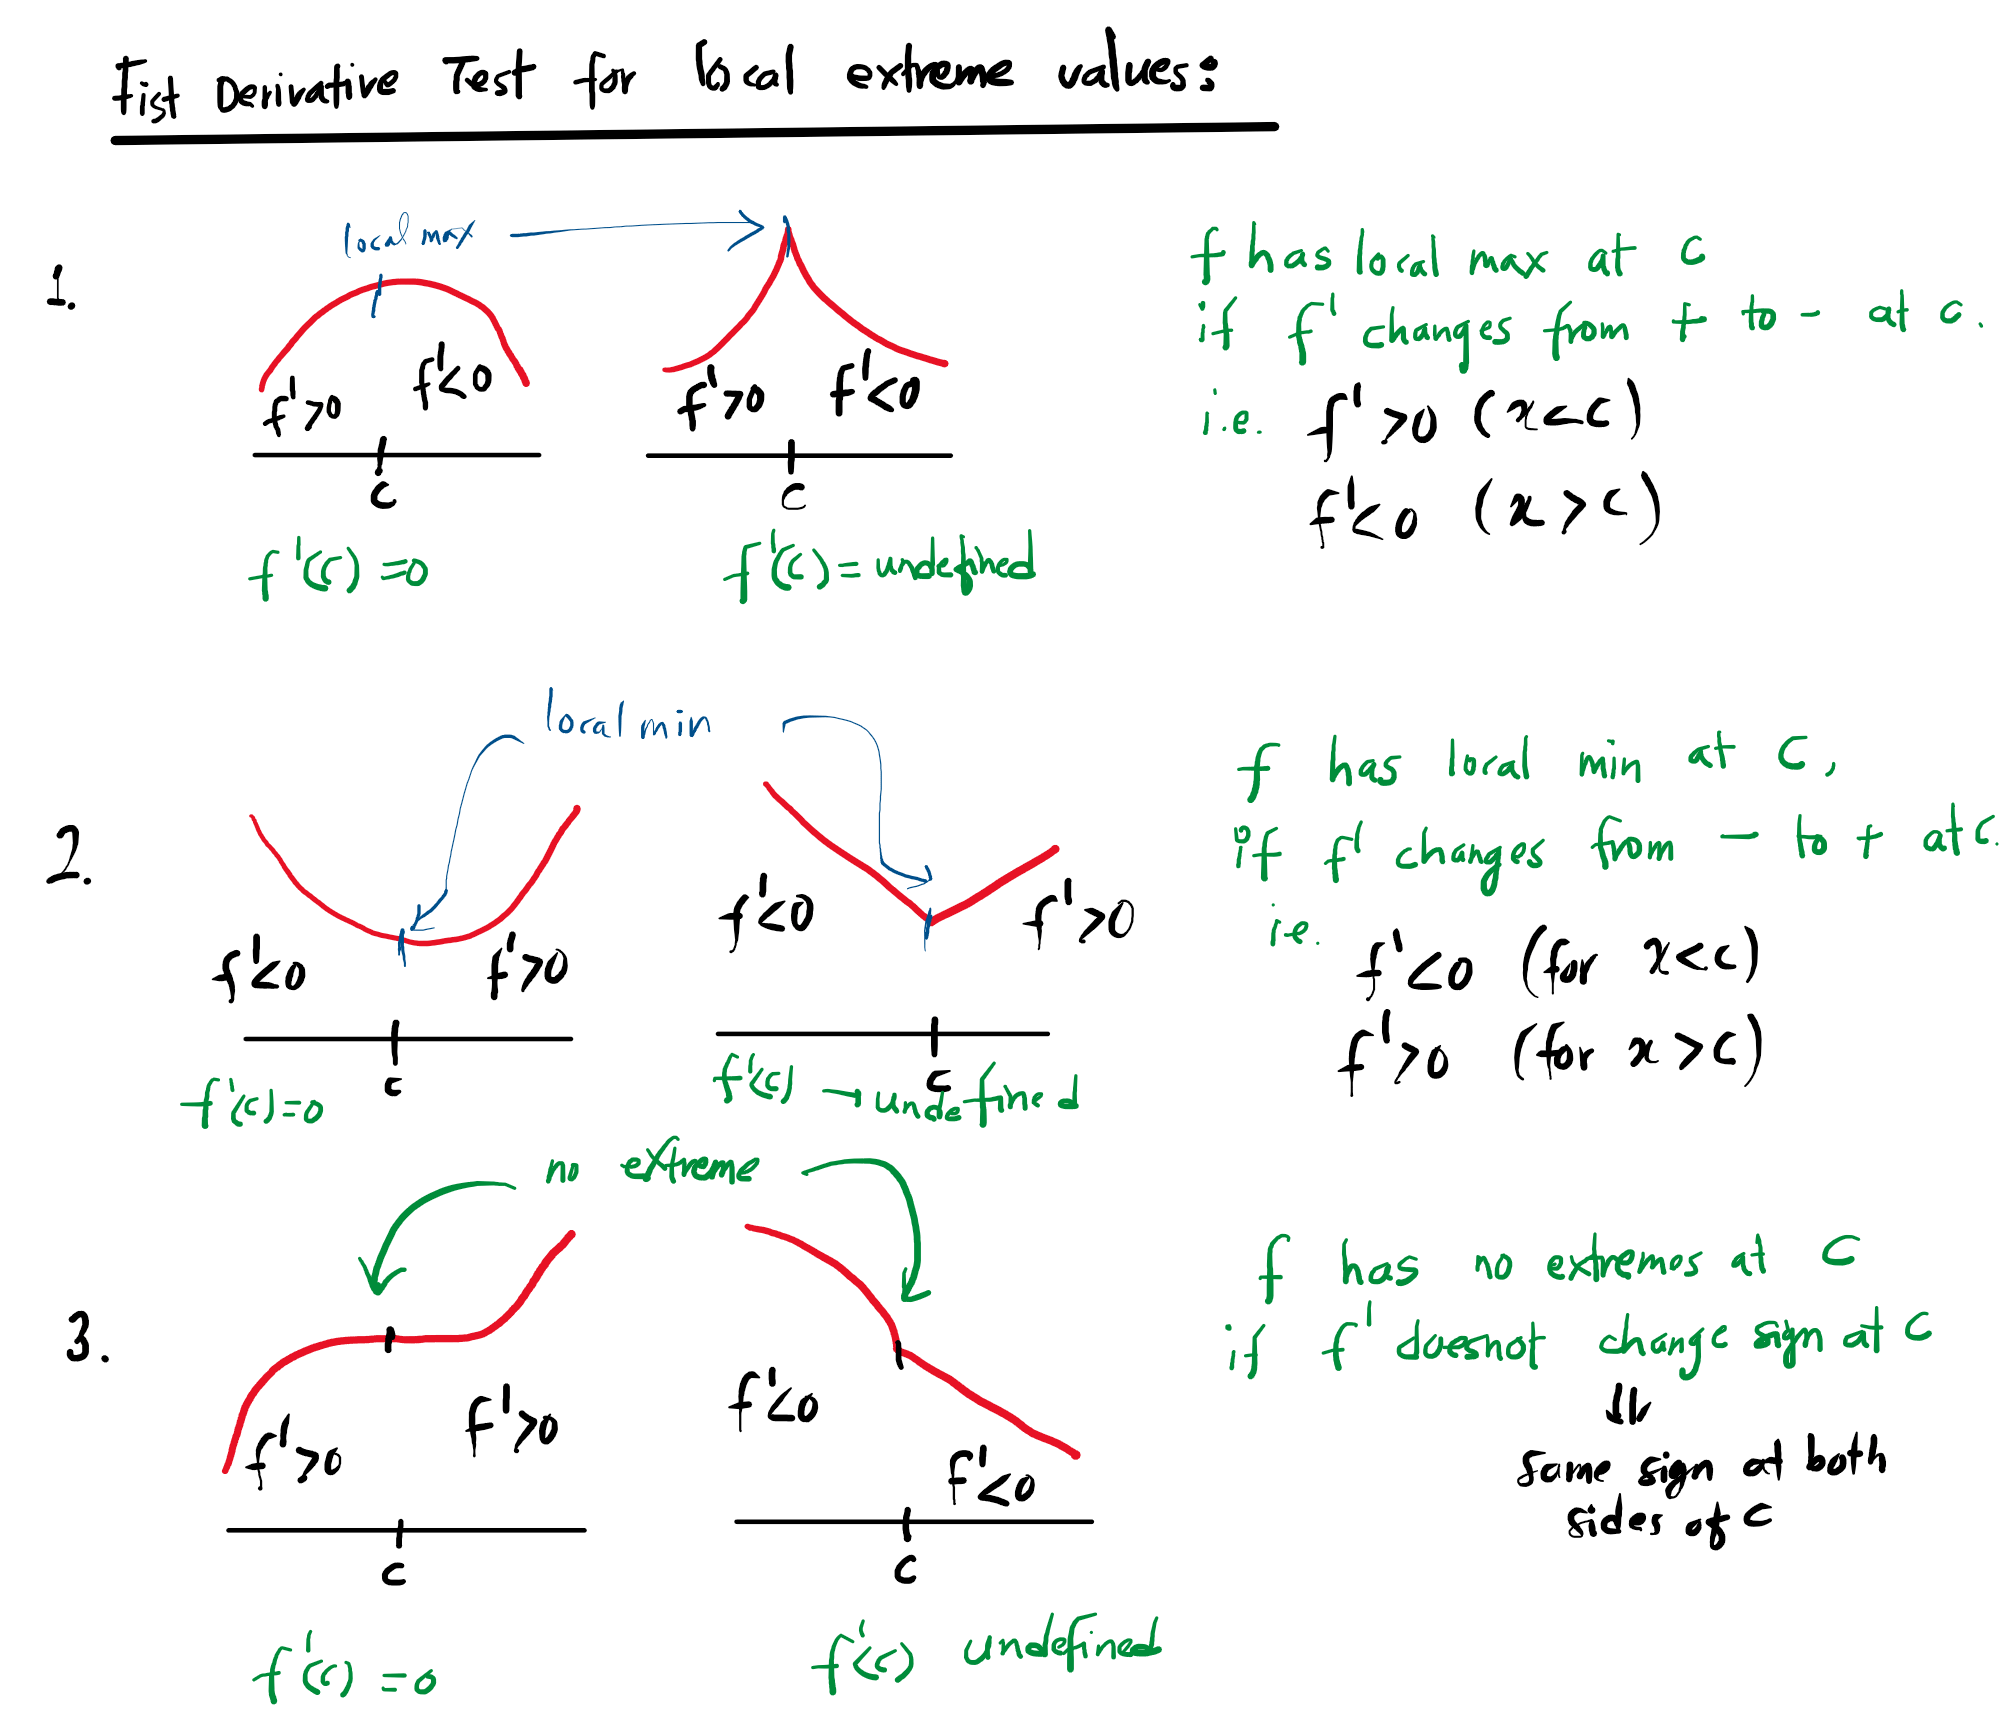 Fist Derivative Test for local extreme values:
local max
1.
f'>0 f'<0
f'>0 f'<0
c
c
f'(c) =0
f'(c) = undefined
f has local max at c
if f' changes from + to - at c.
i.e. f'>0 (x<c)
f'<0 (x>c)
local min
2.
f'<0 f'>0
f'<0 f'>0
c
c
f'(c)=0
f'(c) → undefined
f has local min at c,
if f' changes from - to + at c.
i.e.
f'<0 (for x<c)
f'>0 (for x>c)
no extreme
3.
f'>0 f'>0
f'<0
f'<0
c
c
f'(c) =0
f'(c) undefined
f has no extremes at c
if f' doesnot change sign at c
⇓
same sign at both
sides of c